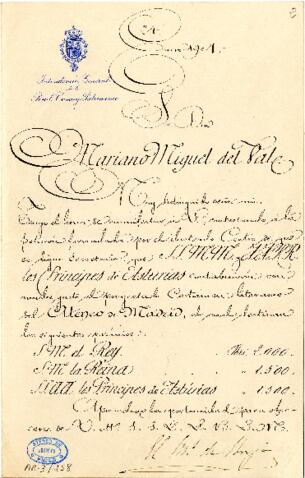 Intendencia General
de la
Real Casa y Patrimonio
Enero 1901.
Sr. Dn.
Mariano Miguel del Val
Muy distinguido señor mio:
Tengo el honor de manifestar á V. contestando á la
petición formulada por el ilustrado Centro de que
es digno Secretario, que S.S. M.M. y A.A. R.R.
los Príncipes de Asturias contribuirán con
mucho gusto, al proyectado Certamen literario
del Ateneo de Madrid, destinando
los siguientes premios:
S. M. el Rey Ptas. 2.000.
S. M. la Reina 1.500
S.S.A.A. los Príncipes de Asturias 1.500
Aprovecho la oportunidad para
de V. S. S. Q. B. S. M.
El
AR-3/158